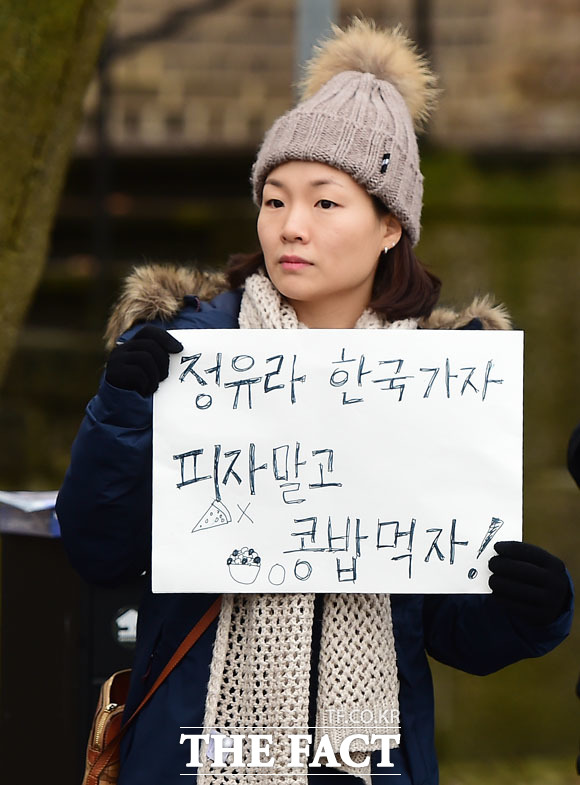 정유라 한국가자
피자말고
X
콩밥먹자!
TF.CO.KR
THE FACT